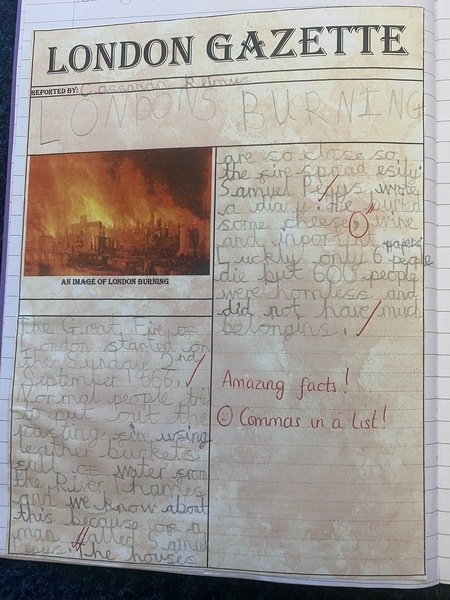 LONDON GAZETTE
REPORTED BY:
LONDONS BURNING
AN IMAGE OF LONDON BURNING
the Great Fire of
London started on
the Sunday 2nd
September 1666.
Normal people
to put out the
fire using
leather buckets
full of water from
the River Thames
and we know about
this because of a
man called
the houses
are so close so
the fire spread esily.
Samuel Pepys wrote
a diary. He buried
some cheese, wine
and inportant papers
Luckly only 6 people
die but 600 people
were homless and
did not have much
belongins.
Amazing facts!
Commas in a list!